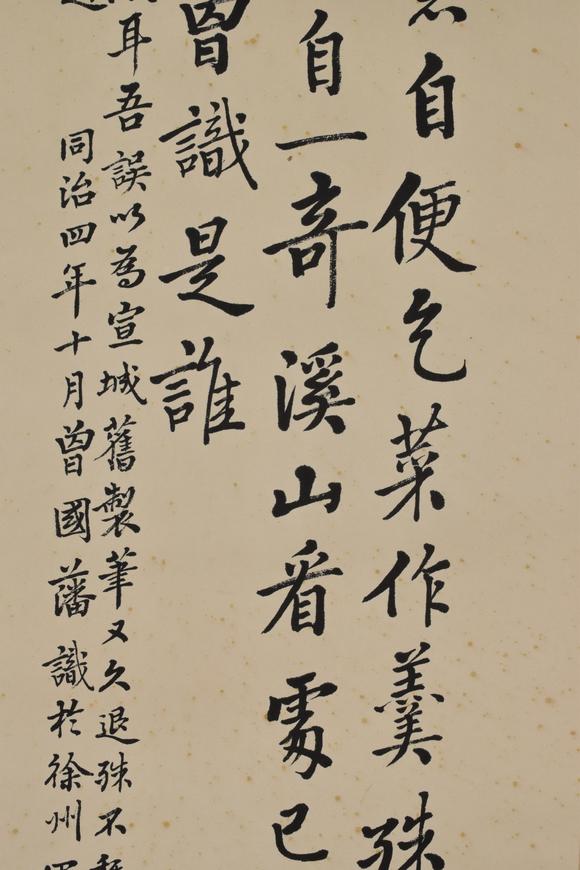 自便乞菜作羹殊
自一奇溪山看處已
曾識是誰
耳吾誤以為宣城舊製筆又久退殊不
同治四年十月曾國藩識於徐州